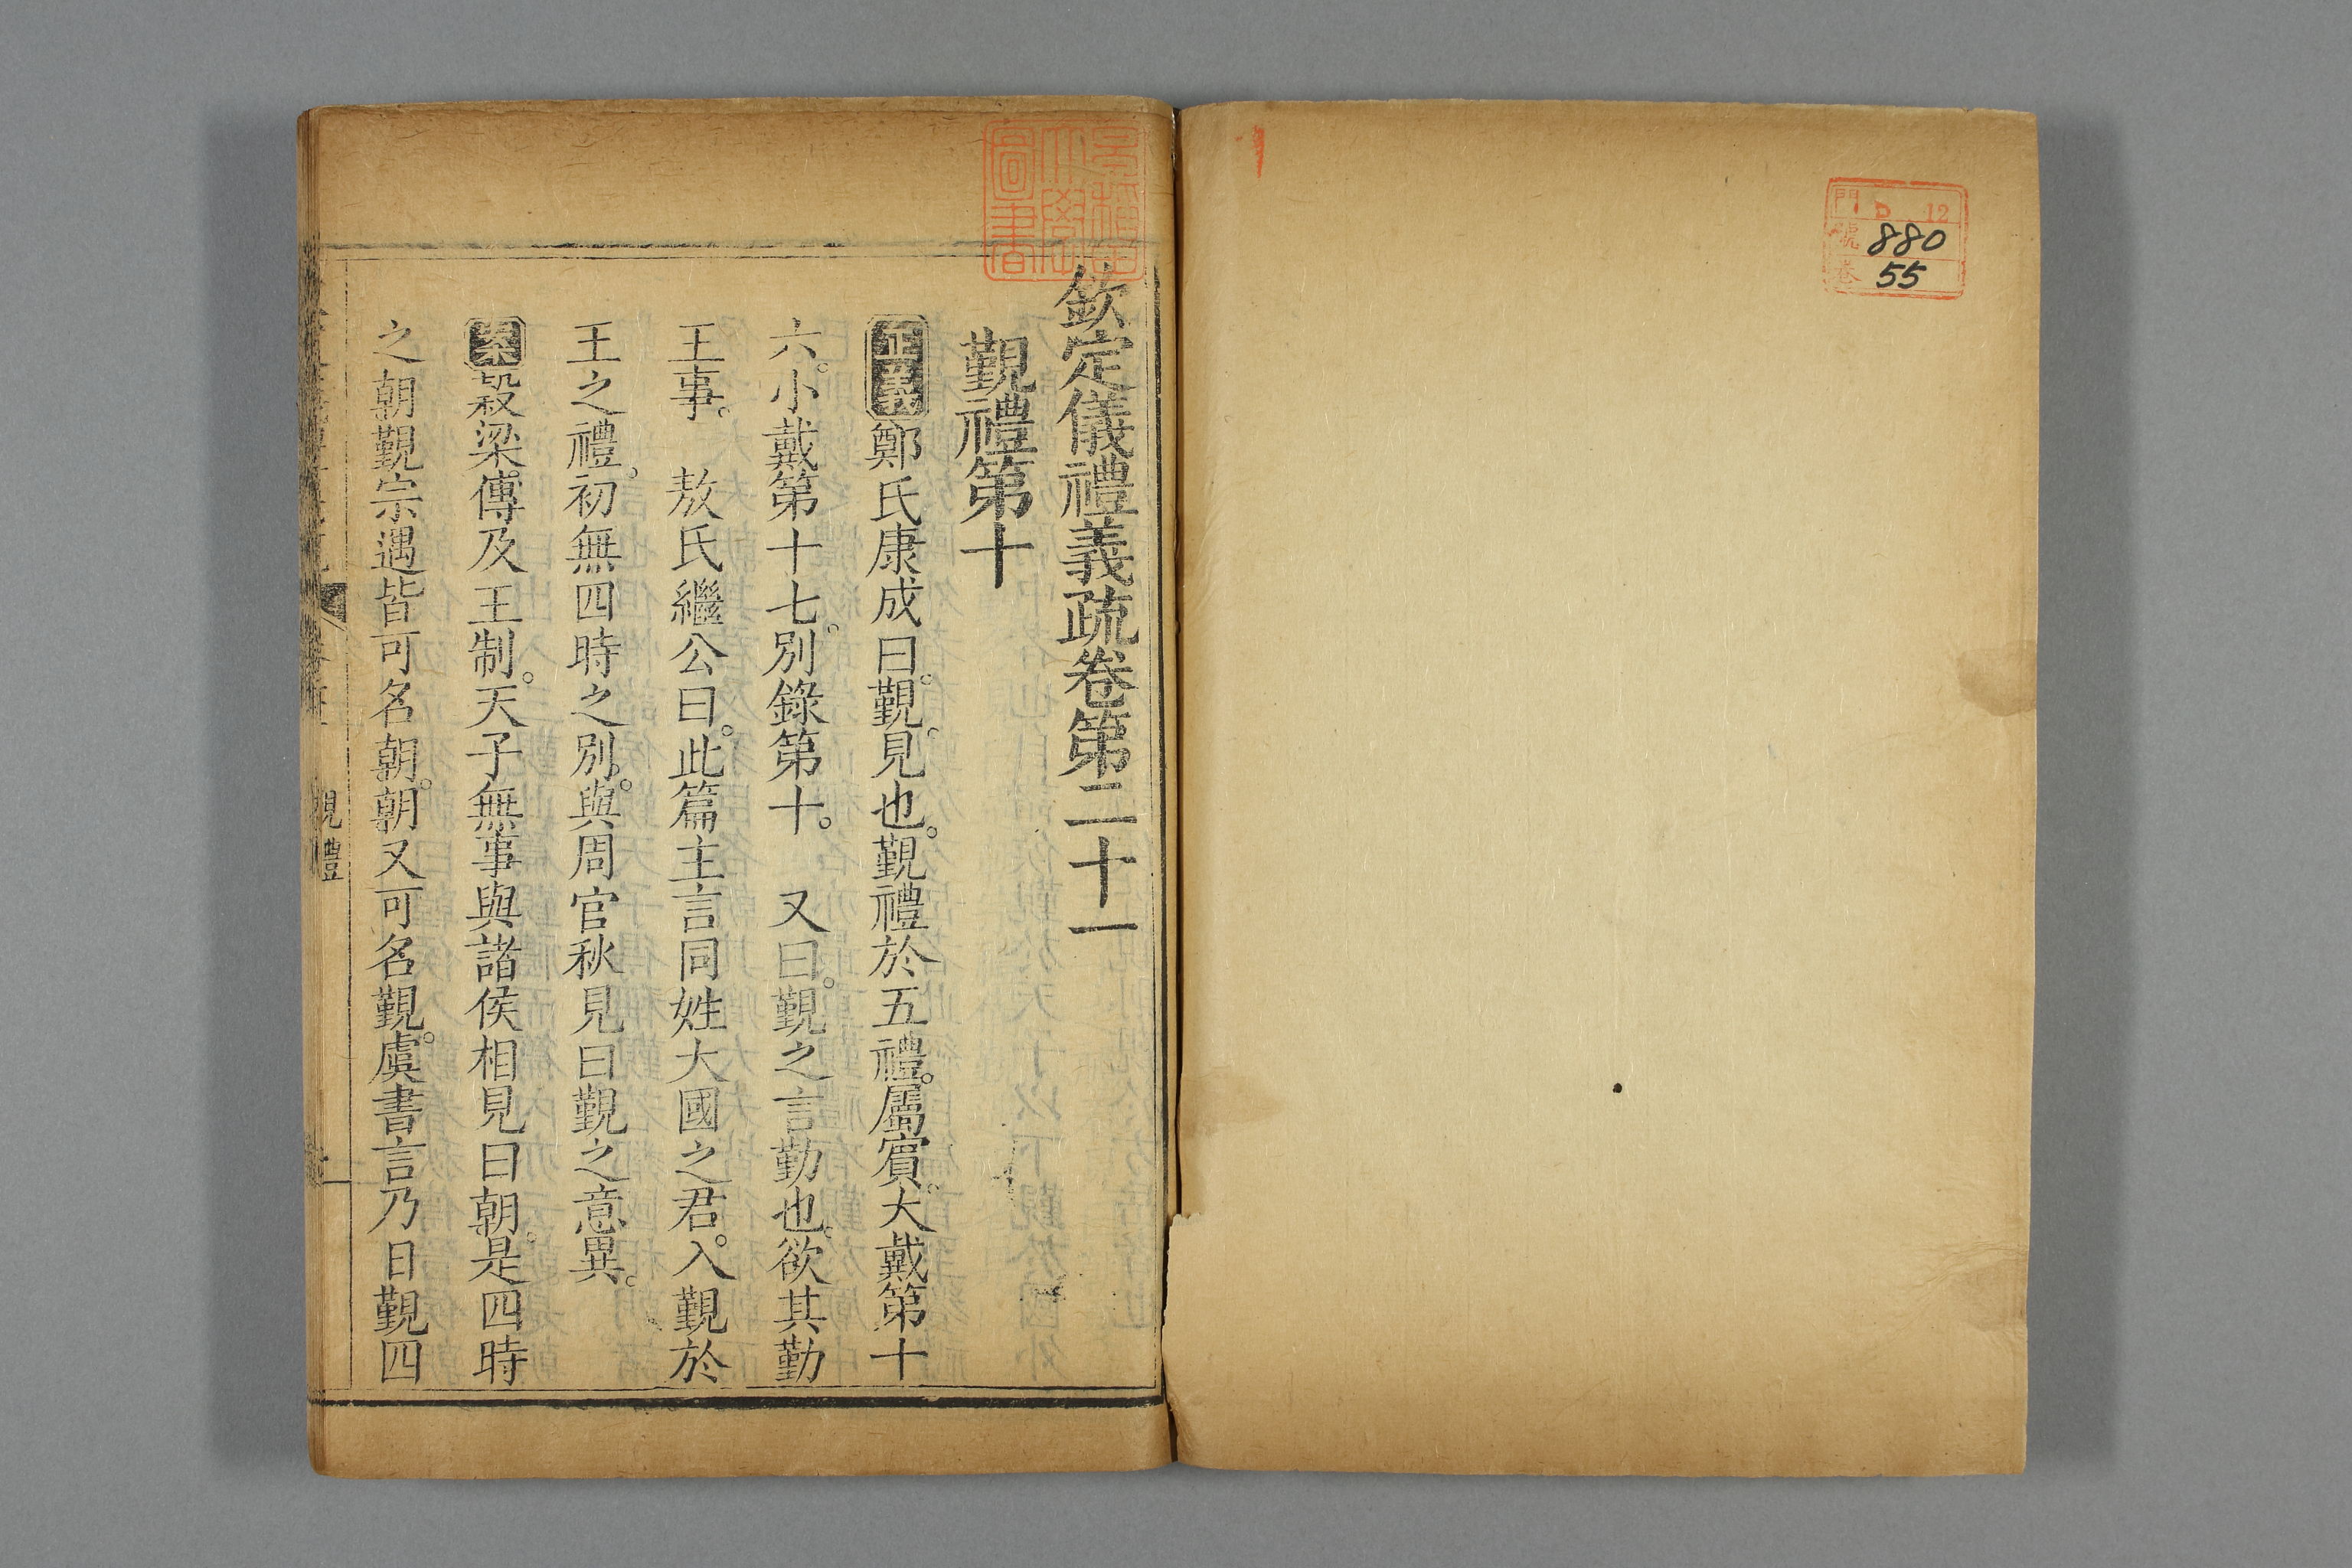 門 D 12
號 880
卷 55
早稻田大學圖書
欽定儀禮義疏卷第二十一
覲禮第十
正義鄭氏康成曰。覲。見也。覲禮於五禮。屬賓。大戴第十
六。小戴第十七。別錄第十。 又曰。覲之言勤也。欲其勤
王事。 敖氏繼公曰。此篇主言同姓大國之君。入覲於
王之禮。初無四時之別。與周官秋見曰覲之意異。
案穀梁傳及王制。天子無事與諸侯相見曰朝。是四時
之朝覲宗遇皆可名朝。朝又可名覲。虞書言乃日覲四
覲禮